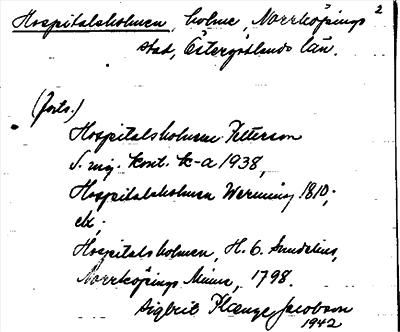 Hospitalsholmen, holme, Norrköpings 2
stad, Östergötlands län.
(forts.)
Hospitalsholmen Petterson
kont. k-a 1938,
Hospitalsholmen Werming 1810;
etc.
Hospitalsholmen, H. O. Sundelius,
Norrköpings Minne, 1798.
Sigbrit Plænge Jacobson
1942